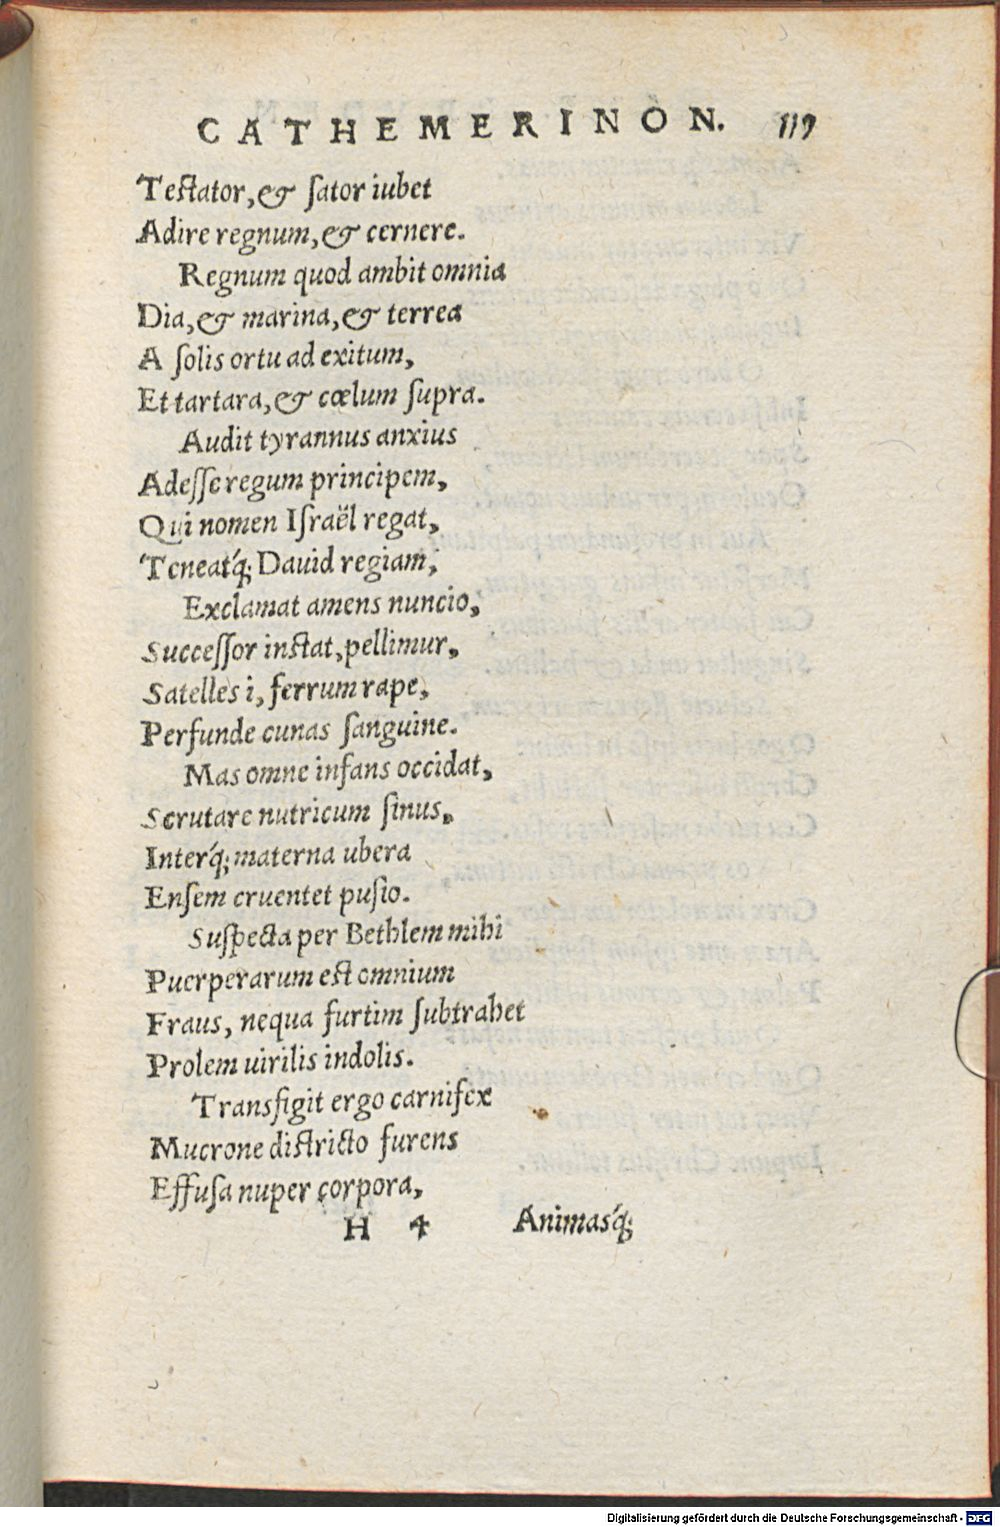 CATHEMERINON. 119
Testator, & sator iubet
Adire regnum, & cernere.
Regnum quod ambit omnia
Dia, & marina, & terrea
A solis ortu ad exitum,
Et tartara, & cœlum supra.
Audit tyrannus anxius
Adesse regum principem,
Qui nomen Israël regat,
Teneatq́; Dauid regiam;
Exclamat amens nuncio,
Successor instat, pellimur,
Satelles i, ferrum rape,
Perfunde cunas sanguine.
Mas omne infans occidat,
Scrutare nutricum sinus,
Interq́; materna ubera
Ensem cruentet pusio.
Suspecta per Bethlem mihi
Puerperarum est omnium
Fraus, nequa furtim subtrahet
Prolem uirilis indolis.
Transfigit ergo carnifex
Mucrone districto furens
Effusa nuper corpora,
H 4 Animasq́;
Digitalisierung gefördert durch die Deutsche Forschungsgemeinschaft - DFG